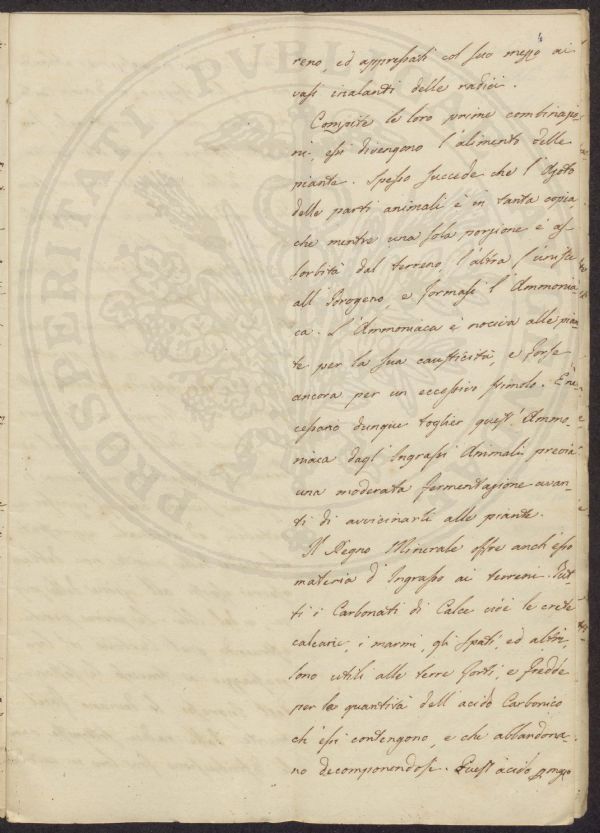 4
reno, ed appressati col suo mezzo ai
vasi inalanti delle radici.
Compite le loro prime combinazio-
ni, essi divengono l'alimento delle
piante. Spesso succede che l'Azoto
delle parti animali è in tanta copia
che mentre una sola porzione è as-
sorbita dal terreno, l'altra s'unisce
all'Idrogeno, e formasi l'Ammonia
ca. L'Ammoniaca è nociva alle pian-
te per la sua causticità, e forse
ancora per un eccessivo stimolo. È ne-
cessario dunque toglier quest'Ammo-
niaca dagl'Ingrassi Animali previa
una moderata fermentazione avan-
ti di avvicinarli alle piante.
Il Regno Minerale offre anch'esso
materia d'Ingrasso ai terreni. Tut-
ti i Carbonati di Calce cioè le crete
calcarie, i marmi, gli spati, ed altri,
sono utili alle terre forti, e fredde
per la quantità dell'acido Carbonico
ch'essi contengono, e che abbandona-
no decomponendosi. Quest'acido
PROSPERITATI PUBLICAE